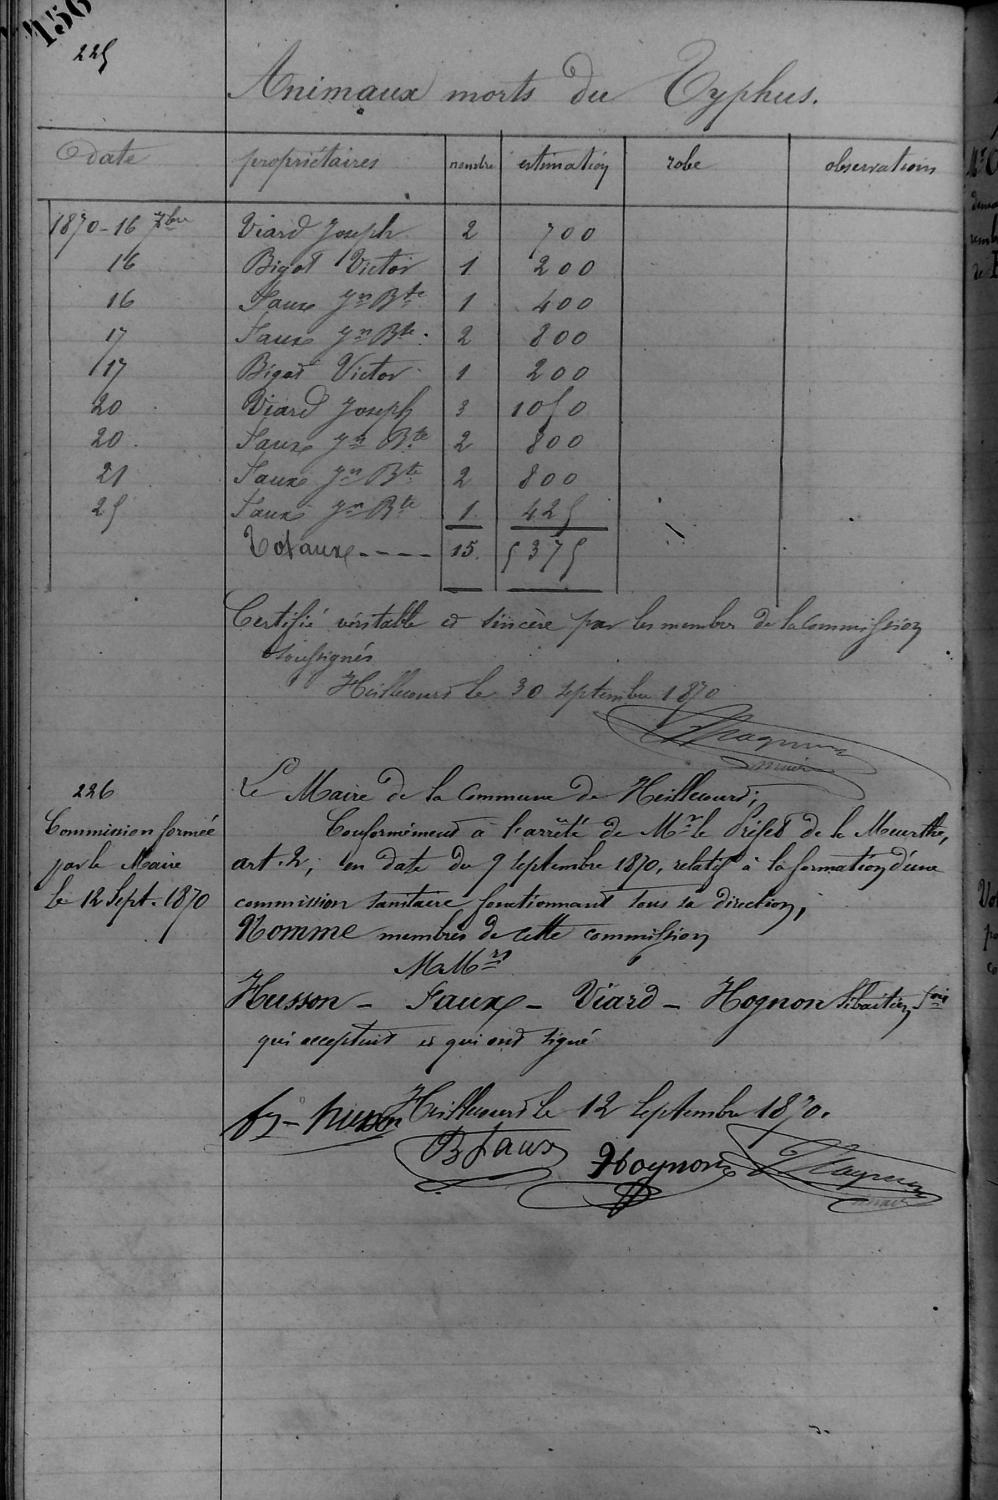 156
225
Animaux morts du Typhus.
date propriétaires nombre estimation robe observations
1870 - 16 7bre Viard Joseph 2 700
16 Bigot Victor 1 200
16 Faux Jn Bte 1 400
17 Faux Jn Bte. 2 800
17 Bigot Victor 1 200
20 Viard Joseph 3 1050
20. Faux Jn Bte 2 800
21 Faux Jn Bte 2 800
25 Faux Jn Bte 1 425
Totaux---- 15. 5375
Certifié véritable et sincère par les membres de la Commission
soussignés
Heillecourt le 30 septembre 1870
maire
226
Commission formée
par le Maire
le 12 Sept. 1870
Le Maire de la Commune de Heillecourt;
Conformément à l'arrêté de Mr le Préfet de la Meurthe,
art. 2, en date du 9 septembre 1870, relatif à la formation d'une
commission sanitaire fonctionnant sous sa direction,
Nomme membres de cette commission
MMrs
Husson - Faux - Viard - Hognon Sébastien
qui acceptent et qui ont signé
Heillecourt le 12 Septembre 1870.
Husson
B Faux
Hognon
maire